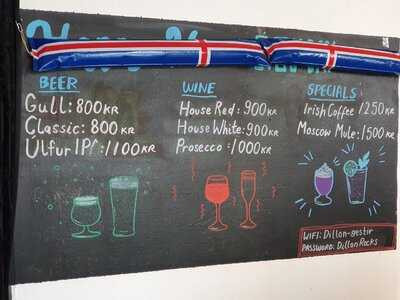 BEER
Gull: 800 KR
Classic: 800 KR
Ulfur IPA: 1100 KR
WINE
House Red: 900 KR
House White: 900 KR
Prosecco: 1000 KR
SPECIALS
Irish Coffee 1250 KR
Moscow Mule: 1500 KR
WIFI: Dillon-gestir
PASSWORD: DillonRocks